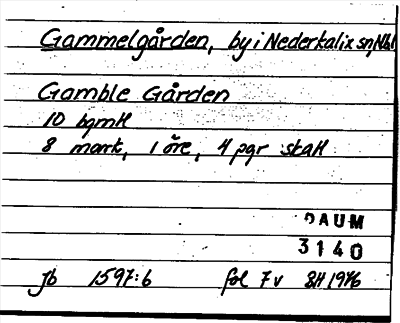 Gammelgården, by i Nederkalix sn, Nbl
Gamble Gården
10 bqmH
8 mark, 1 öre, 4 pgr skatt
DAUM
3140
Jb 1597:6 fol 7v BH 1946